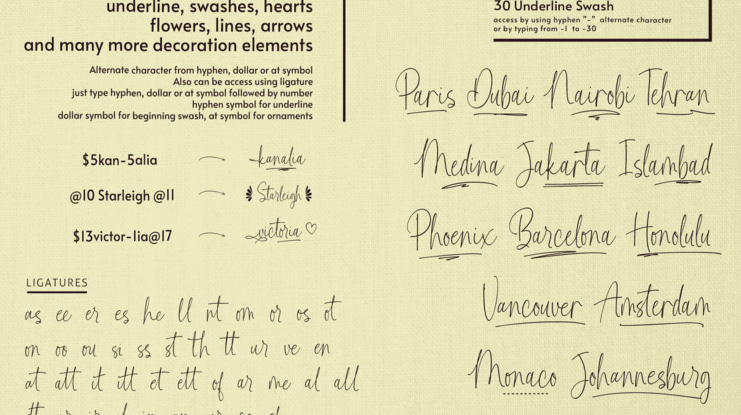 underline, swashes, hearts
flowers, lines, arrows
and many more decoration elements
Alternate character from hyphen, dollar or at symbol
Also can be access using ligature
just type hyphen, dollar or at symbol followed by number
hyphen symbol for underline
dollar symbol for beginning swash, at symbol for ornaments
$5kan-5alia kanalia
@10 Starleigh @11 Starleigh
$13victor-1ia@17 victoria
LIGATURES
as ee er es he ll nt om or os ot
on oo ou si ss st th tt ur ve en
at att it itt et ett of ar me al all
30 Underline Swash
access by using hyphen "-" alternate character
or by typing from -1 to -30
Paris Dubai Nairobi Tehran
Medina Jakarta Islambad
Phoenix Barcelona Honolulu
Vancouver Amsterdam
Monaco Johannesburg